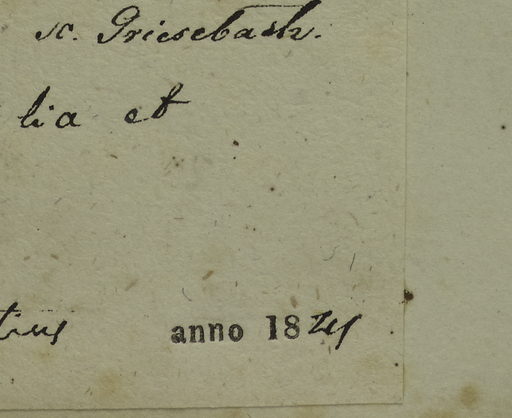 sc. Griesebach.
lia et
tius
anno 1824